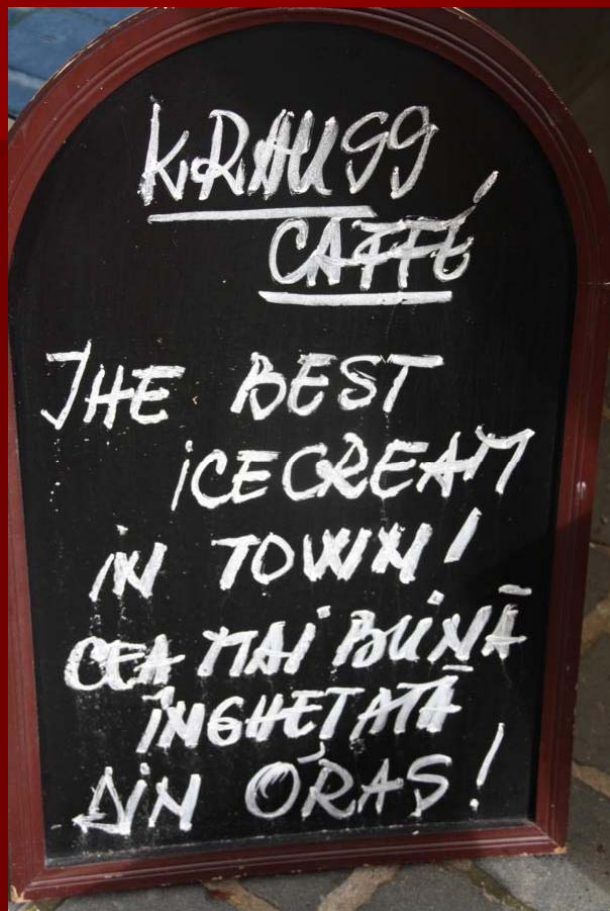 KRAUSS
CAFFÉ
THE BEST
iCECREAM
iN TOWN!
CEA MAi BUNĂ
ÎNGHEȚATĂ
DiN ORAS!